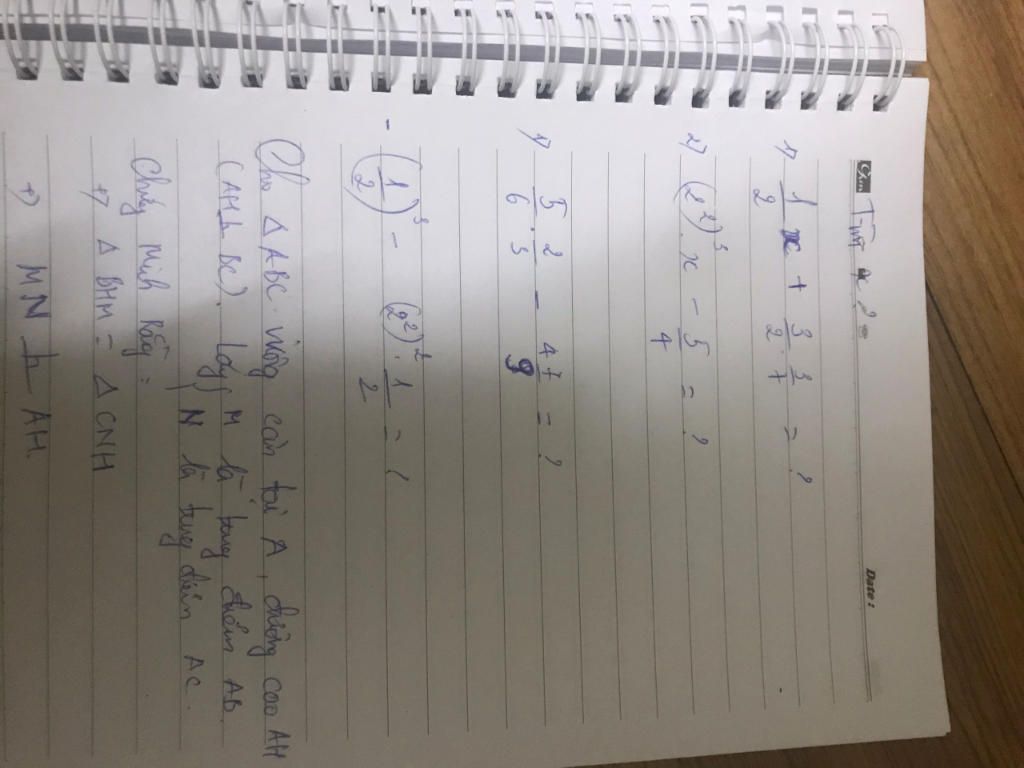 Date:
Tìm x ?
1) 1/2 x + 3/2 . 3/7 = ?
2) (2²)³ . x - 5/4 = ?
1) 5/6 . 2/3 - 47/9 = ?
- (1/2)³ - (2²)² . 1/2 = ?
Cho Δ ABC vuông cân tại A, đường cao AH
(AH ⊥ BC). Lấy M là trung điểm AB
N là trung điểm AC.
Chứng Minh Rằng:
+) Δ BHM = Δ CNH
+) MN ⊥ AH.